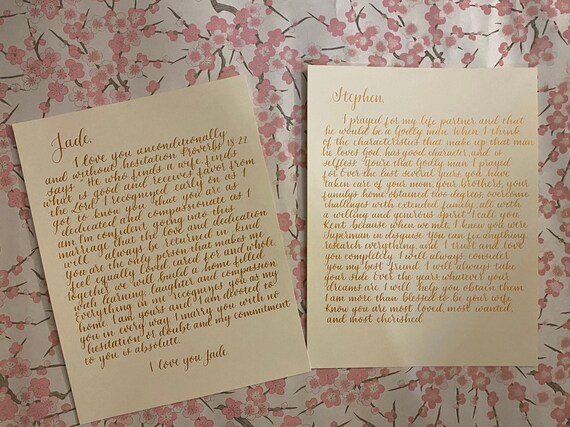 Jade,
I love you unconditionally
and without hesitation. Proverbs 18:22
says "He who finds a wife finds
what is good and receives favor from
the Lord." I recognized early on as I
got to know you that you are as
dedicated and compassionate as I
am. I'm confident going into this
marriage that the love and dedication
will always be returned in kind.
you are the only person that makes me
feel equally loved, cared for and whole.
Together we will build a home filled
with learning, laughter and compassion.
everything in me recognizes you as my
home. I am yours and I am devoted to
you in every way. I marry you with no
hesitation or doubt and my commitment
to you is absolute.
I love you Jade
Stephen,
I prayed for my life partner and that
he would be a Godly man. When I think
of the characteristics that make up that man
he loves God, has good character and is
selfless. You're that Godly man I prayed
for. Over the last several years, you have
taken care of your mom, your brothers, your
family's home, obtained two degrees, overcome
challenges with extended family, all with
a willing and generous spirit. I call you
Kent because when we met, I knew you were
Superman in disguise. You can fix anything,
research everything, and I trust and love
you completely. I will always consider
you my best friend. I will always take
your side. Over the years whatever your
dreams are, I will help you obtain them.
I am more than blessed to be your wife.
Know you are most loved, most wanted,
and most cherished.